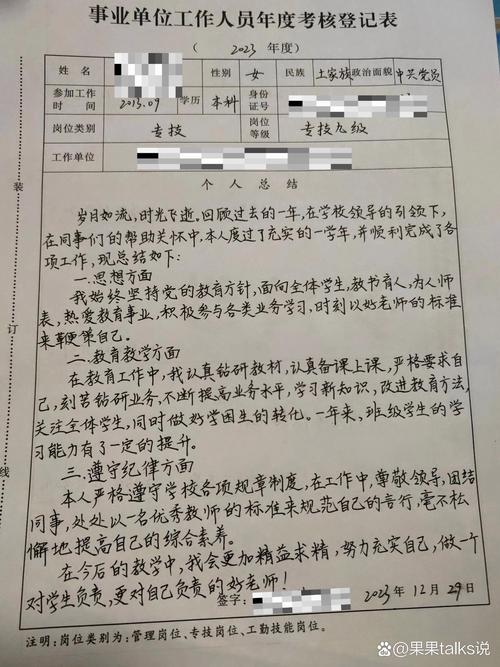 事业单位工作人员年度考核登记表
( 2023 年度)
姓名 性别 女 民族 土家族 政治面貌 中共党员
参加工作时间 2015.09 学历 本科 身份证号
岗位类别 专技 岗位等级 专技九级
工作单位
个人总结
岁月如流,时光飞逝。回顾过去的一年,在学校领导的引领下,
在同事们的帮助关怀中,本人度过了充实的一学年,并顺利完成了各
项工作,现总结如下:
一.思想方面
我始终坚持党的教育方针,面向全体学生,教书育人,为人师
表,热爱教育事业,积极参与各类业务学习,时刻以好老师的标准
来鞭策自己。
二.教育教学方面
在教育工作中,我认真钻研教材,认真备课上课,严格要求自
己,刻苦钻研业务,不断提高业务水平,学习新知识,改进教育方法,
关注全体学生,同时做好学困生的转化。一年来,班级学生的学
习能力有了一定的提升。
三.遵守纪律方面
本人严格遵守学校各项规章制度,在工作中,尊敬领导,团结
同事,处处以一名优秀教师的标准来规范自己的言行,毫不松
懈地提高自己的综合素养。
在今后的教学中,我会更加精益求精,努力充实自己,做一个
对学生负责,更对自己负责的好老师!
签字: 2023年12月29日
装
订
线
注明:岗位类别为:管理岗位、专技岗位、工勤技能岗位。
果果talks说